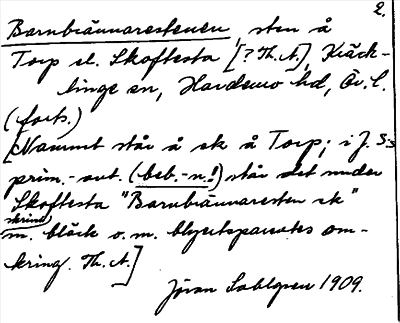 2.
Barnbrännarestenen, sten å
Torp el. Skoftesta [? Th. A.], Kräck-
linge sn, Hardemo hd, Ör. l.
(forts.)
[Namnet står å sk å Torp; i J. S:s
prim.-ant. (beb.-n.!) står det under
Skoftesta "Barnbrännaresten sk"
skrivet
m. bläck o. m. blyertspennstr. om-
kring. Th. A.]
Jöran Sahlgren 1909.